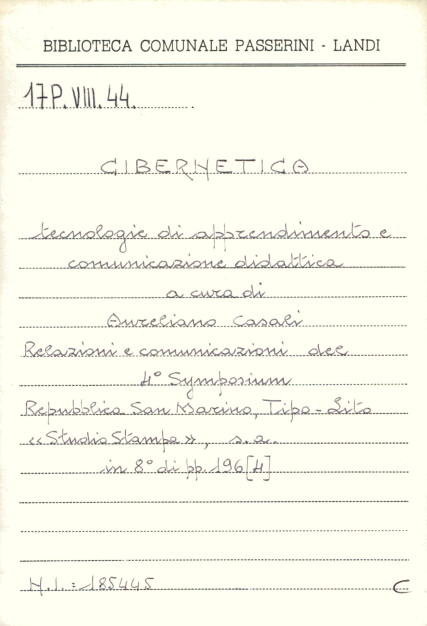 BIBLIOTECA COMUNALE PASSERINI - LANDI
17P.VIII.44.
CIBERNETICA
tecnologie di apprendimento e
comunicazione didattica
a cura di
Aureliano Casali
Relazioni e comunicazioni del
4° Symposium
Repubblica San Marino, Tipo-Lito
«Studio Stampa», s.a.
in 8° di pp. 196[4]
N.I.: 185445
C